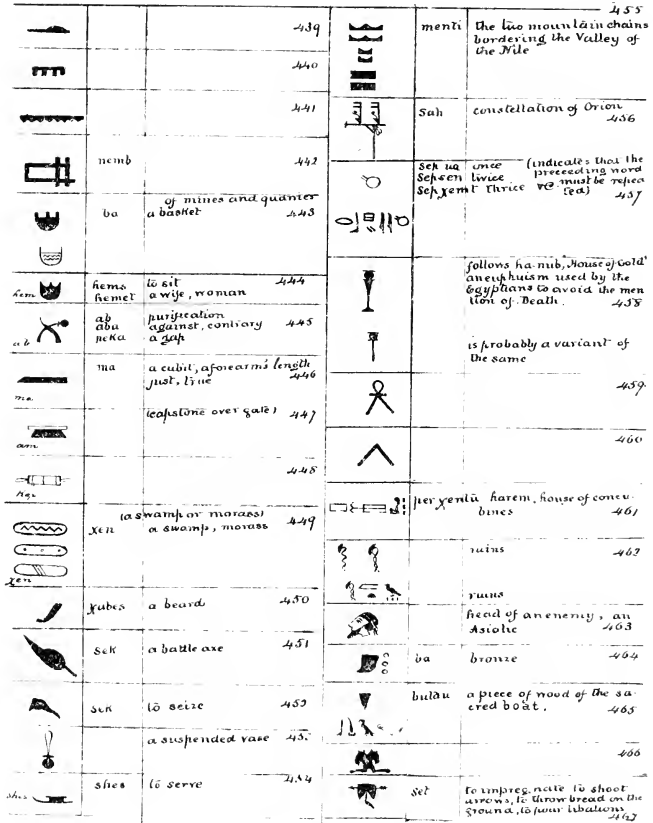 439
440
441
nemb 442
of mines and quarries
ba a basket 443
hem hems to sit 444
hemet a wife, woman
ab purification
abu against, contrary 445
ab peka a gap
ma a cubit, a forearm's length
just, true 446
ma
(capstone over gate) 447
am
448
(a swamp or morass)
χen a swamp, morass 449
χen
χubes a beard 450
sek a battle axe 451
sek to seize
a suspended vase
shes to serve 454
shes
455
menti the two mountain chains
bordering the Valley of
the Nile
Sah constellation of Orion
456
sep ua once (indicates that the
Sepsen twice preceeding word
Sepχemt thrice &c. must be repea
ted) 457
follows ha-nub, "House of Gold"
an euphuism used by the
Egyptians to avoid the men
tion of Death. 458
is probably a variant of
the same
459
460
per χentu harem, house of concu-
bines 461
ruins
ruins
head of an enemy, an
Asiatic 463
ba bronze 464
butau a piece of wood of the sa-
cred boat. 465
466
set to impreg-nate to shoot
arrows, to throw bread on the
ground, to pour libations
467